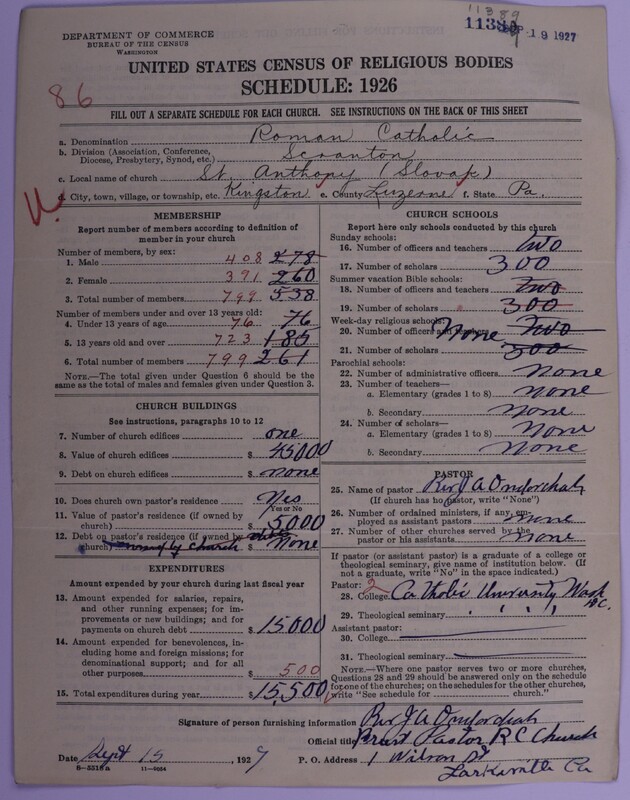 11389
1138 SEP 19 1927
DEPARTMENT OF COMMERCE
BUREAU OF THE CENSUS
WASHINGTON
UNITED STATES CENSUS OF RELIGIOUS BODIES
SCHEDULE: 1926
86
FILL OUT A SEPARATE SCHEDULE FOR EACH CHURCH. SEE INSTRUCTIONS ON THE BACK OF THIS SHEET
a. Denomination Roman Catholic
b. Division (Association, Conference,
Diocese, Presbytery, Synod, etc.) Scranton
c. Local name of church St. Anthony (Slovak)
d. City, town, village, or township, etc. Kingston e. County Luzerne f. State Pa.
MEMBERSHIP
Report number of members according to definition of
member in your church
Number of members, by sex:
1. Male 408 278
2. Female 391 260
3. Total number of members 799 538
Number of members under and over 13 years old:
4. Under 13 years of age 76 76
5. 13 years old and over 723 185
6. Total number of members 799 261
NOTE.—The total given under Question 6 should be
the same as the total of males and females given under Question 3.
CHURCH BUILDINGS
See instructions, paragraphs 10 to 12
7. Number of church edifices one
8. Value of church edifices $ 45000
9. Debt on church edifices $ none
10. Does church own pastor's residence Yes
Yes or No
11. Value of pastor's residence (if owned by
church) $ 5000
12. Debt on pastor's residence (if owned by
church) owned by church $ None
EXPENDITURES
Amount expended by your church during last fiscal year
13. Amount expended for salaries, repairs,
and other running expenses; for im-
provements or new buildings; and for
payments on church debt $ 15000
14. Amount expended for benevolences, in-
cluding home and foreign missions; for
denominational support; and for all
other purposes $ 500
15. Total expenditures during year $ 15,500
CHURCH SCHOOLS
Report here only schools conducted by this church
Sunday schools:
16. Number of officers and teachers two
17. Number of scholars 300
Summer vacation Bible schools:
18. Number of officers and teachers two
19. Number of scholars 300
Week-day religious schools:
20. Number of officers and teachers None two
21. Number of scholars 300
Parochial schools:
22. Number of administrative officers none
23. Number of teachers—
a. Elementary (grades 1 to 8) none
b. Secondary none
24. Number of scholars—
a. Elementary (grades 1 to 8) none
b. Secondary none
PASTOR
25. Name of pastor Rev J A
(If church has no pastor, write "None")
26. Number of ordained ministers, if any, em-
ployed as assistant pastors none
27. Number of other churches served by the
pastor or his assistants none
If pastor (or assistant pastor) is a graduate of a college or
theological seminary, give name of institution below. (If
not a graduate, write "No" in the space indicated.)
Pastor: 2
28. College Catholic University Wash
D.C.
29. Theological seminary " " "
Assistant pastor:
30. College
31. Theological seminary
NOTE.—Where one pastor serves two or more churches,
Questions 28 and 29 should be answered only on the schedule
for one of the churches; on the schedules for the other churches,
write "See schedule for church."
Signature of person furnishing information Rev J A
Official title Pastor R C Church
Date Sept 15, 1927 P. O. Address 1 Wilson St
Larksville Pa
8—5318a 11—9084